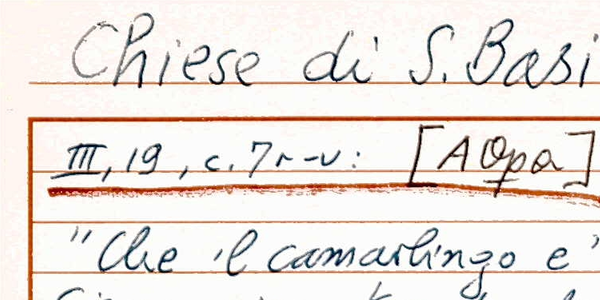 Chiese di S. Basi
III, 19, c. 7r-v: [A Opa]
"Che il camarlingo e"